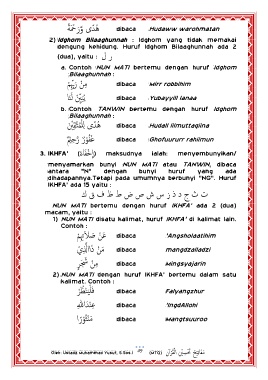 هُدًى وَرَحْمَةً dibaca :Hudaww warohmatan
2) Idghom Bilaaghunnah : Idghom yang tidak memakai
dengung kehidung. Huruf Idghom Bilaaghunnah ada 2
(dua), yaitu : ل ر
a. Contoh NUN MATI bertemu dengan huruf Idghom
Bilaaghunnah :
مِنْ رَبِّهِمْ dibaca :Mirr robbihim
يُبَيِّنْ لَنَا dibaca :Yubayyil lanaa
b. Contoh TANWIN bertemu dengan huruf Idghom
Bilaaghunnah :
هُدًى لِلْمُتَّقِيْنَ dibaca :Hudal lilmuttaqiina
غَفُوْرٌ رَحِيْمٌ dibaca :Ghofuurur rahiimun
3. IKHFA' (إِخْفَاء) maksudnya ialah menyembunyikan/
menyamarkan bunyi NUN MATI atau TANWIN, dibaca
antara "N" dengan bunyi huruf yang ada
dihadapannya.Tetapi pada umumnya berbunyi "NG". Huruf
IKHFA' ada 15 yaitu :
ت ث ج د ذ ز س ش ص ض ط ظ ف ق ك
NUN MATI bertemu dengan huruf IKHFA' ada 2 (dua)
macam, yaitu :
1) NUN MATI disatu kalimat, huruf IKHFA' di kalimat lain.
Contoh :
عَنْ صَلَاتِهِمْ dibaca :'Angsholaatihim
مَنْ ذَاالَّذِيْ dibaca :mangdzalladzi
مِنْ شَجَرٍ dibaca :Mingsyajarin
2) NUN MATI dengan huruf IKHFA' bertemu dalam satu
kalimat. Contoh :
فَلْيَنْظُرْ dibaca :Falyangzhur
عِنْدَاللهِ dibaca :'IngdAllohi
مَنْثُوْرًا dibaca :Mangtsuuroo
Oleh: Ustadz Muhammad Yusuf, S.Sos.I (MTQ)